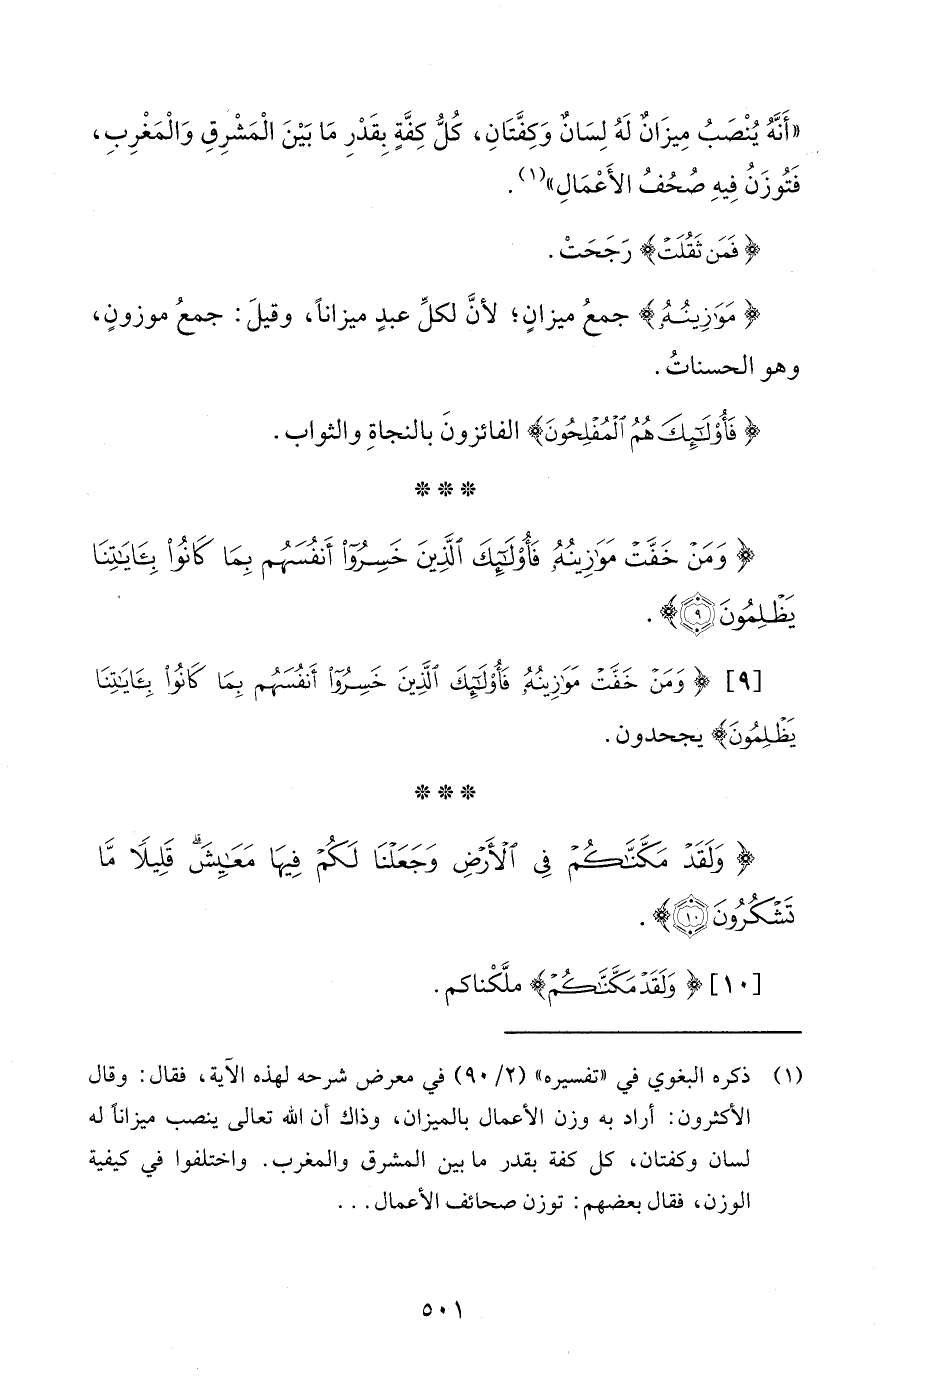 «أَنَّهُ يُنْصَبُ مِيزَانٌ لَهُ لِسَانٌ وَكِفَّتَانِ، كُلُّ كِفَّةٍ بِقَدْرِ مَا بَيْنَ الْمَشْرِقِ وَالْمَغْرِبِ،
فَتُوزَنُ فِيهِ صُحُفُ الأَعْمَالِ»(١).
﴿فَمَن ثَقُلَتْ﴾ رَجَحَتْ.
﴿مَوَٰزِينُهُۥ﴾ جمعُ ميزانٍ؛ لأنَّ لكلِّ عبدٍ ميزاناً، وقيلَ: جمعُ موزونٍ،
وهو الحسناتُ.
﴿فَأُوْلَٰٓئِكَ هُمُ ٱلْمُفْلِحُونَ﴾ الفائزونَ بالنجاةِ والثواب.
***
﴿وَمَنْ خَفَّتْ مَوَٰزِينُهُۥ فَأُوْلَٰٓئِكَ ٱلَّذِينَ خَسِرُوٓاْ أَنفُسَهُم بِمَا كَانُواْ بِـَٔايَٰتِنَا
يَظْلِمُونَ ۝٩﴾.
[٩] ﴿وَمَنْ خَفَّتْ مَوَٰزِينُهُۥ فَأُوْلَٰٓئِكَ ٱلَّذِينَ خَسِرُوٓاْ أَنفُسَهُم بِمَا كَانُواْ بِـَٔايَٰتِنَا
يَظْلِمُونَ﴾ يجحدون.
***
﴿وَلَقَدْ مَكَّنَّٰكُمْ فِي ٱلْأَرْضِ وَجَعَلْنَا لَكُمْ فِيهَا مَعَٰيِشَۗ قَلِيلًا مَّا
تَشْكُرُونَ ۝١٠﴾.
[١٠] ﴿وَلَقَدْ مَكَّنَّٰكُمْ﴾ ملَّكْناكم.
(١) ذكره البغوي في «تفسيره» (٢/ ٩٠) في معرض شرحه لهذه الآية، فقال: وقال
الأكثرون: أراد به وزن الأعمال بالميزان، وذاك أن الله تعالى ينصب ميزاناً له
لسان وكفتان، كل كفة بقدر ما بين المشرق والمغرب. واختلفوا في كيفية
الوزن، فقال بعضهم: توزن صحائف الأعمال...
٥٠١